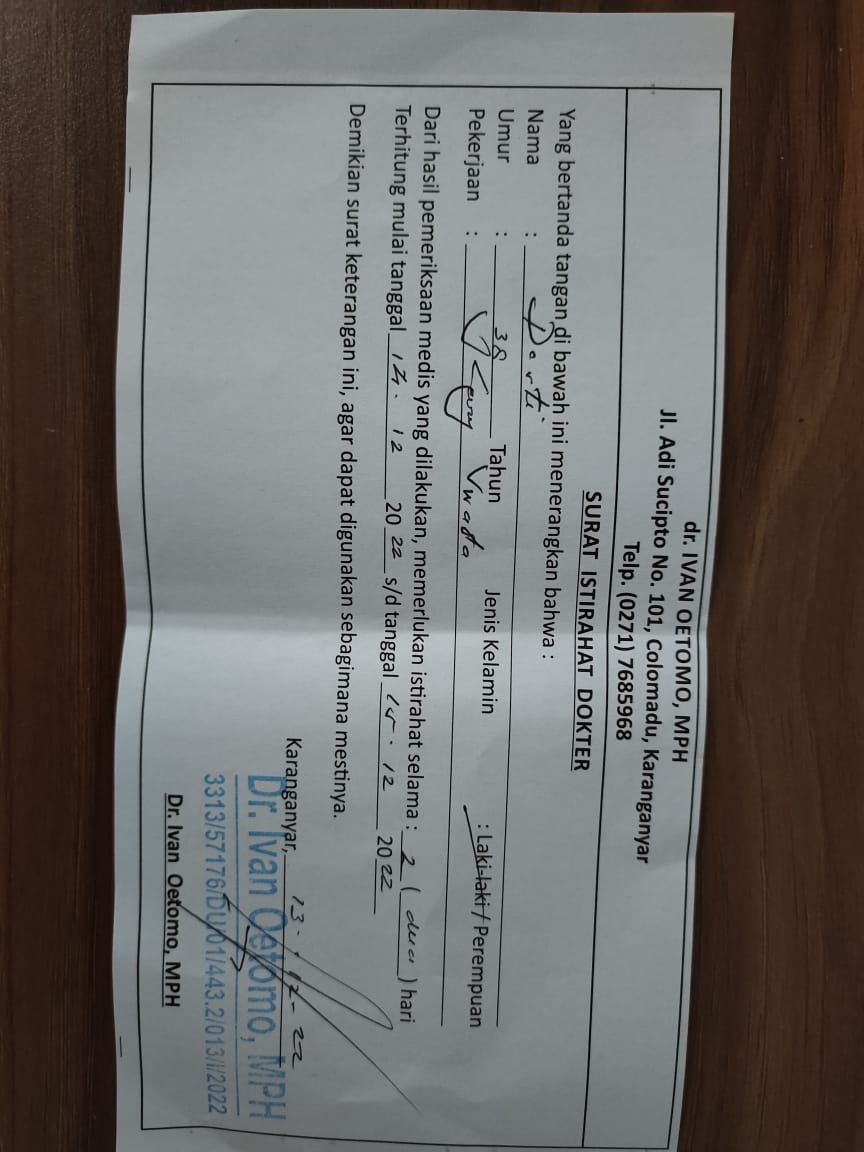 dr. IVAN OETOMO, MPH
Jl. Adi Sucipto No. 101, Colomadu, Karanganyar
Telp. (0271) 7685968
SURAT ISTIRAHAT DOKTER
Yang bertanda tangan di bawah ini menerangkan bahwa :
Nama :
Umur : 38 Tahun Jenis Kelamin : Laki-laki / Perempuan
Pekerjaan :
Dari hasil pemeriksaan medis yang dilakukan, memerlukan istirahat selama : 2 ( dua ) hari
Terhitung mulai tanggal 14 . 12 20 22 s/d tanggal 15 . 12 20 22
Demikian surat keterangan ini, agar dapat digunakan sebagimana mestinya.
Karanganyar, 13 . 12 - 22
Dr. Ivan Oetomo, MPH
3313/57176/DU/01/443.2/013/I/2022
Dr. Ivan Oetomo, MPH